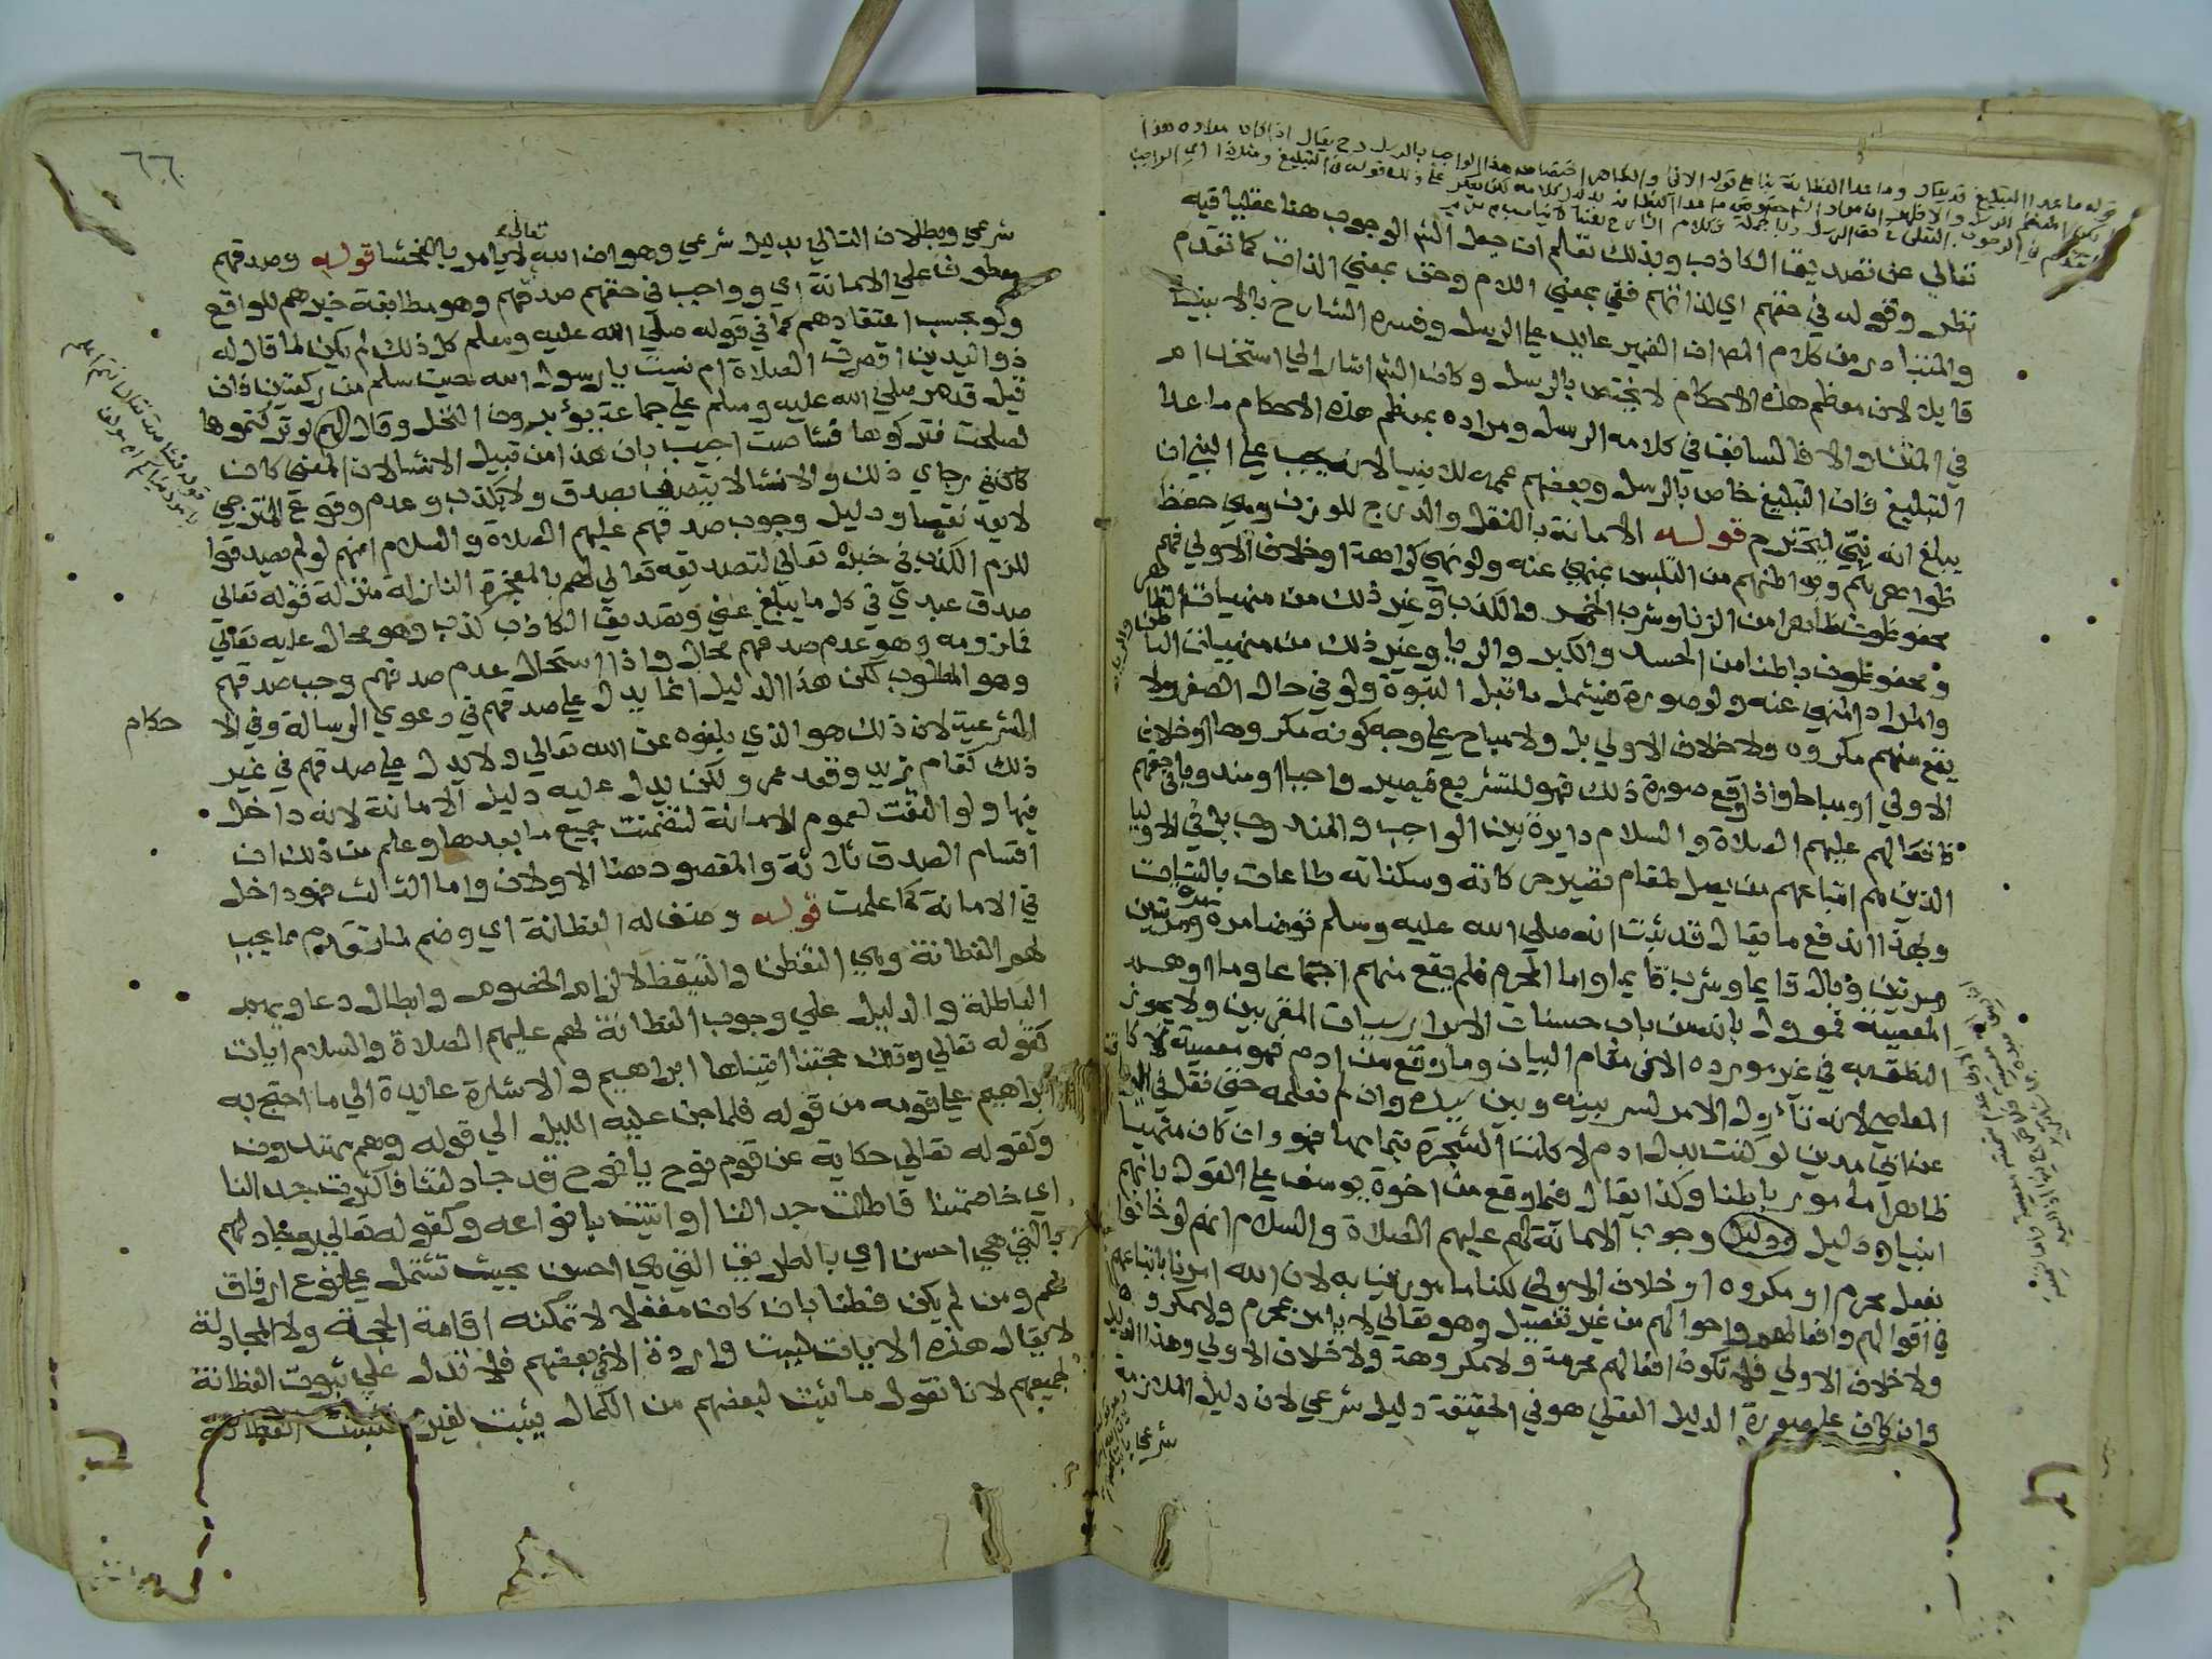 تعالي عن تصديق الكاذب وبذلك تعلم ان جعل الشم الوجوب هنا عقليا فيه
نظر وقوله في حقهم اي لذاتهم ففي بمعني اللام وحق بمعني الذات كما تقدم
والمتبادر من كلام المص ان الضمير عايد علي الرسل وفسره الشارح بالانبيا
قايلا لان معظم هذه الاحكام لا يختص بالرسل وكان الشم اشار الي استخدام
في المتن والا فالسياق في كلامه الرسل ومراده بمعظم هذه الاحكام ما عدا
التبليغ فان التبليغ خاص بالرسل وبعضهم عممه للانبيا لانه يجب علي النبي ان
يبلغ انه نبي ليحترم قوله الامانة بالنقل والدرج للوزن وهي حفظ
ظواهرهم وبواطنهم من التلبس بمنهي عنه ولو نهي كراهة او خلاف الاولي فهم
محفوظون ظاهرا من الزنا وشرب الخمر والكذب وغير ذلك من منهيات الظاهر
ومحفوظون باطنا من الحسد والكبر والريا وغير ذلك من منهيات الباطن
والمراد المنهي عنه ولو صورة فيشمل ما قبل النبوة ولو في حال الصغر ولا
يقع منهم مكروه ولا خلاف الاولي بل ولا مباح علي وجه كونه مكروها او خلاف
الاولي او مباحا واذا وقع صورة ذلك فهو للتشريع فيصير واجبا او مندوبا في حقهم
فافعالهم عليهم الصلاة والسلام دايرة بين الواجب والمندوب بل في الاوليا
الذين هم اتباعهم من يصل لمقام تصير حركاته وسكناته طاعات بالنيات
وبهذا اندفع ما يقال قد ثبت انه صلي الله عليه وسلم توضا مرة مرة ومرتين
مرتين وبال قايما وشرب قايما واما المحرم فلم يقع منهم اجتماعا وما اوهم
المعصية فمؤول بانه من باب حسنات الابرار سيات المقربين ولا يجوز
النطق به في غير مورده الا في مقام البيان وما وقع من ادم فهو معصية لا كا
المعاصي لانه تأول الامر لسر بينه وبين سيده وان لم نعلمه حتي نقل في
عن ابي مدين لو كنت بدل ادم لاكلت الشجرة بتمامها فهو وان كان منهيا
ظاهرا مامور باطنا وكذا يقال فيما وقع من اخوة يوسف علي القول بانهم
انبيا ودليل وجوب الامانة لهم عليهم الصلاة والسلام انهم لو خانوا
بفعل محرم او مكروه او خلاف الاولي لكنا مامورين به لان الله امرنا باتباعهم
في اقوالهم وافعالهم واحوالهم من غير تفصيل وهو تعالي لا يامر بمحرم ولا مكروه
ولا خلاف الاولي فلا تكون افعالهم محرمة ولا مكروهة ولا خلاف الاولي وهذا الدليل
وان كان علي صورة الدليل العقلي هو في الحقيقة دليل شرعي لان دليل الملازمة
شرعي
٦٦
شرعي وبطلان التالي بدليل شرعي وهو ان الله تعالي لا يامر بالفحشا قوله وصدقهم
معطوف علي الامانة اي وواجب في حقهم صدقهم وهو مطابقة خبرهم للواقع
ولو بحسب اعتقادهم كما في قوله صلي الله عليه وسلم كل ذلك لم يكن لما قال له
ذو اليدين اقصرت الصلاة ام نسيت يا رسول الله حين سلم من ركعتين فان
قيل قد مر صلي الله عليه وسلم علي جماعة يؤبرون النخل وقال لهم لو تركتموها
لصلحت فتركوها فشاصت اجيب بان هذا من قبيل الانشا لان المعني كان
في رجاي ذلك والانشا لا يتصف بصدق ولا بكذب وعدم وقوع المترجي
لا يعد نقصا ودليل وجوب صدقهم عليهم الصلاة والسلام انهم لو لم يصدقوا
للزم الكذب في خبره تعالي لتصديقه تعالي لهم بالمعجزة النازلة منزلة قوله تعالي
صدق عبدي في كل ما يبلغ عني وتصديق الكاذب كذب وهو محال عليه تعالي
فملزومه وهو عدم صدقهم محال واذا استحال عدم صدقهم وجب صدقهم
وهو المطلوب لكن هذا الدليل انما يدل علي صدقهم في دعوي الرسالة وفي الا
حكام
الشرعية لان ذلك هو الذي بلغوه عن الله تعالي ولا يدل علي صدقهم في غير
ذلك كقام زيد وقعد عمرو ولكن يدل عليه دليل الامانة لانه داخل
فيها ولو التفت لعموم الامانة لتضمنت جميع ما بعدها وعلم من ذلك ان
اقسام الصدق ثلاثة والمقصود هنا الاولان واما الثالث فهو داخل
في الامانة كما علمت قوله وضف له الفطانة اي وضم لما تقدم مما يجب
لهم الفطانة وهي التفطن والتيقظ لالزام الخصوم وابطال دعاويهم
الباطلة والدليل علي وجوب الفطانة لهم عليهم الصلاة والسلام ايات
كقوله تعالي وتلك حجتنا اتيناها ابراهيم والاشارة عايدة الي ما احتج به
ابراهيم علي قومه من قوله فلما جن عليه الليل الي قوله وهم مهتدون
وكقوله تعالي حكاية عن قوم نوح يا نوح قد جادلتنا فاكثرت جدالنا
اي خاصمتنا فاطلت جدالنا او اتيت بانواعه وكقوله تعالي وجادلهم
بالتي هي احسن اي بالطريق التي هي احسن بحيث تشتمل علي نوع ارفاق
بهم ومن لم يكن فطنا بان كان مغفلا لا تمكنه اقامة الحجة ولا المجادلة
لا يقال هذه الايات ليست واردة الا في بعضهم فلا تدل علي ثبوت الفطانة
لجميعهم لانا نقول ما ثبت لبعضهم من الكمال يثبت لغيره فثبتت الفطانة